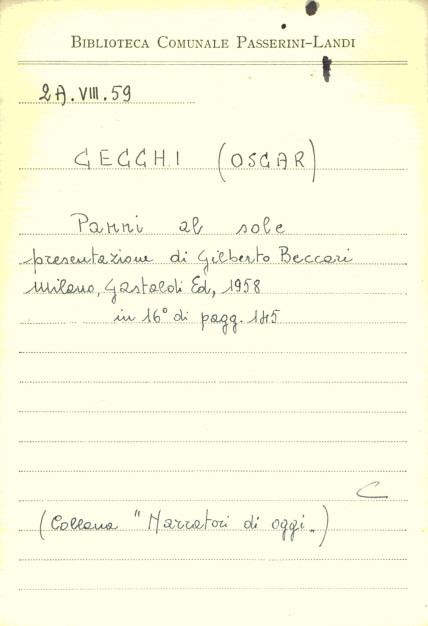 BIBLIOTECA COMUNALE PASSERINI-LANDI
2A.VIII.59
CECCHI (OSCAR)
Panni al sole
presentazione di Gilberto Beccari
Milano, Gastaldi Ed, 1958
in 16° di pagg. 145
C
(Collana "Narratori di oggi")